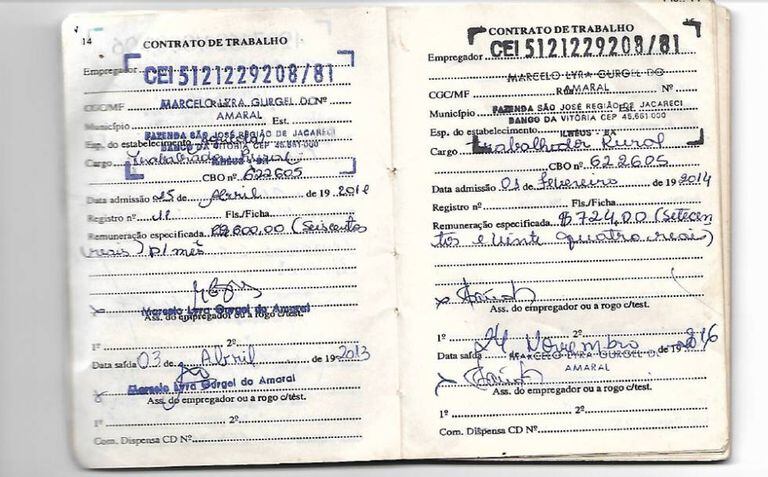 14
CONTRATO DE TRABALHO
CEI 5121229208/81
Empregador
CGC/MF MARCELO LYRA GURGEL DO Nº
AMARAL
Município Est.
FAZENDA SÃO JOSÉ REGIÃO DE JACARECI
Esp. do estabelecimento
BANCO DA VITÓRIA CEP 45.661-000
Cargo Trabalhador Rural
ILHÉUS - BA
CBO nº 622605
Data admissão de Abril de 19
Registro nº 11 Fls./Ficha
Remuneração especificada 600,00 (Seiscentos
reais) p/ mês
Marcelo Lyra Gurgel do Amaral
Ass. do empregador ou a rogo c/test.
1º 2º
Data saída 03 de Abril de 19 2013
Marcelo Lyra Gurgel do Amaral
Ass. do empregador ou a rogo c/test.
1º 2º
Com. Dispensa CD Nº
CONTRATO DE TRABALHO
CEI 5121229208/81
Empregador
MARCELO LYRA GURGEL DO
CGC/MF AMARAL
Nº
Município
FAZENDA SÃO JOSÉ REGIÃO DE JACARECI
BANCO DA VITÓRIA CEP 45.661 000
Esp. do estabelecimento
ILHÉUS - BA
Cargo Trabalhador Rural
CBO nº 622605
Data admissão 01 de fevereiro de 19 2014
Registro nº Fls./Ficha
Remuneração especificada $ 724,00 (Setecen
tos e vinte quatro reais)
Ass. do empregador ou a rogo c/test.
1º 2º
Data saída 24 Novembro de 19 2016
MARCELO LYRA GURGEL DO
AMARAL
Ass. do empregador ou a rogo c/test.
1º 2º
Com. Dispensa CD Nº